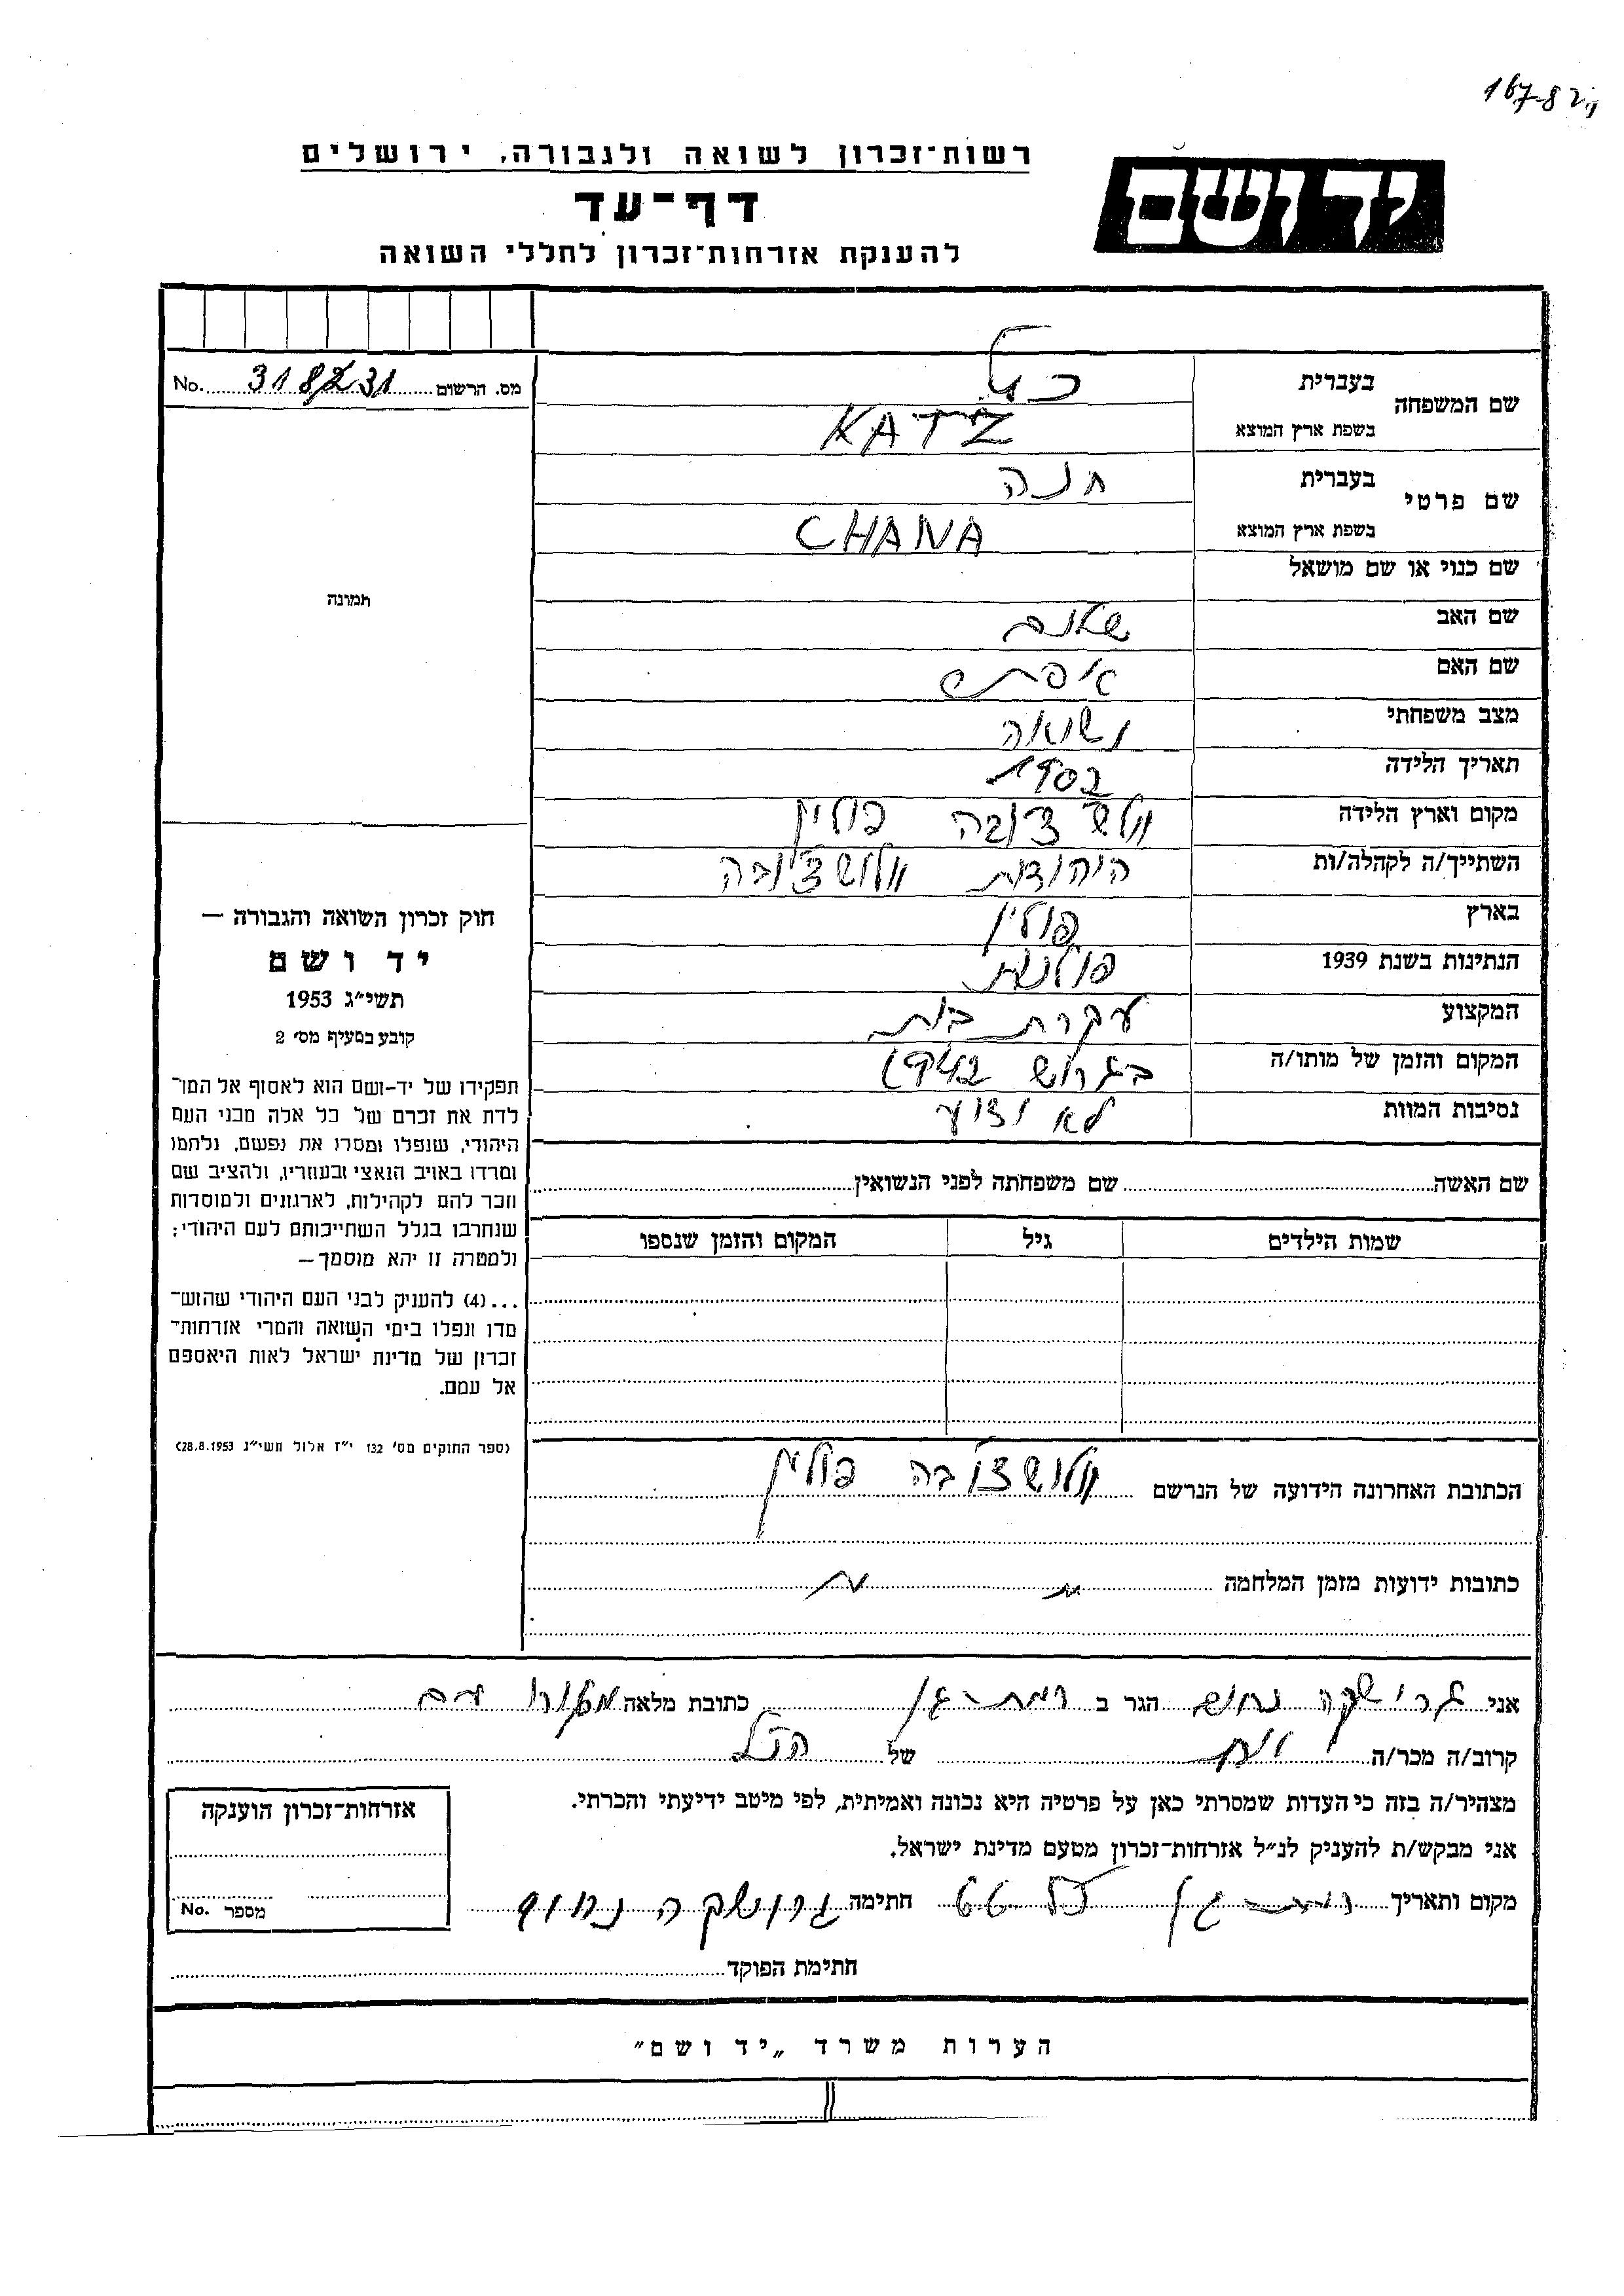 167-82
רשות־זכרון לשואה ולגבורה, ירושלים
יד ושם
דף־עד
להענקת אזרחות־זכרון לחללי השואה
מס. הרשום No.
שם המשפחה
בעברית כץ
בשפת ארץ המוצא KATZ
שם פרטי
בעברית חנה
בשפת ארץ המוצא CHANA
שם כנוי או שם מושאל
שם האב שלום
שם האם
מצב משפחתי נשואה
תאריך הלידה
מקום וארץ הלידה פולין
השתייך/ה לקהלה/ות היהודית
בארץ פולין
הנתינות בשנת 1939 פולנית
המקצוע עקרת בית
המקום והזמן של מותו/ה בגרוש 1942
נסיבות המוות לא ידוע
שם האשה שם משפחתה לפני הנשואין
שמות הילדים גיל המקום והזמן שנספו
הכתובת האחרונה הידועה של הנרשם פולין
כתובות ידועות מזמן המלחמה
תמונה
חוק זכרון השואה והגבורה —
יד ושם
תשי״ג 1953
קובע בסעיף מס׳ 2
תפקידו של יד-ושם הוא לאסוף אל המו־
לדת את זכרם של כל אלה מבני העם
היהודי, שנפלו ומסרו את נפשם, נלחמו
ומרדו באויב הנאצי ובעוזריו, ולהציב שם
וזכר להם לקהילות, לארגונים ולמוסדות
שנחרבו בגלל השתייכותם לעם היהודי;
ולמטרה זו יהא מוסמך—
...(4) להעניק לבני העם היהודי שהוש־
מדו ונפלו בימי השואה והמרי אזרחות־
זכרון של מדינת ישראל לאות היאספם
אל עמם.
(ספר החוקים מס׳ 132 י״ז אלול תשי״ג 28.8.1953)
אני גרושקה נחום הגר ב רמת-גן כתובת מלאה
קרוב/ה מכר/ה של הנ״ל
מצהיר/ה בזה כי העדות שמסרתי כאן על פרטיה היא נכונה ואמיתית, לפי מיטב ידיעתי והכרתי.
אני מבקש/ת להעניק לנ״ל אזרחות־זכרון מטעם מדינת ישראל.
מקום ותאריך רמת-גן חתימה גרושקה נחום
חתימת הפוקד
אזרחות־זכרון הוענקה
מספר No.
הערות משרד „יד ושם״